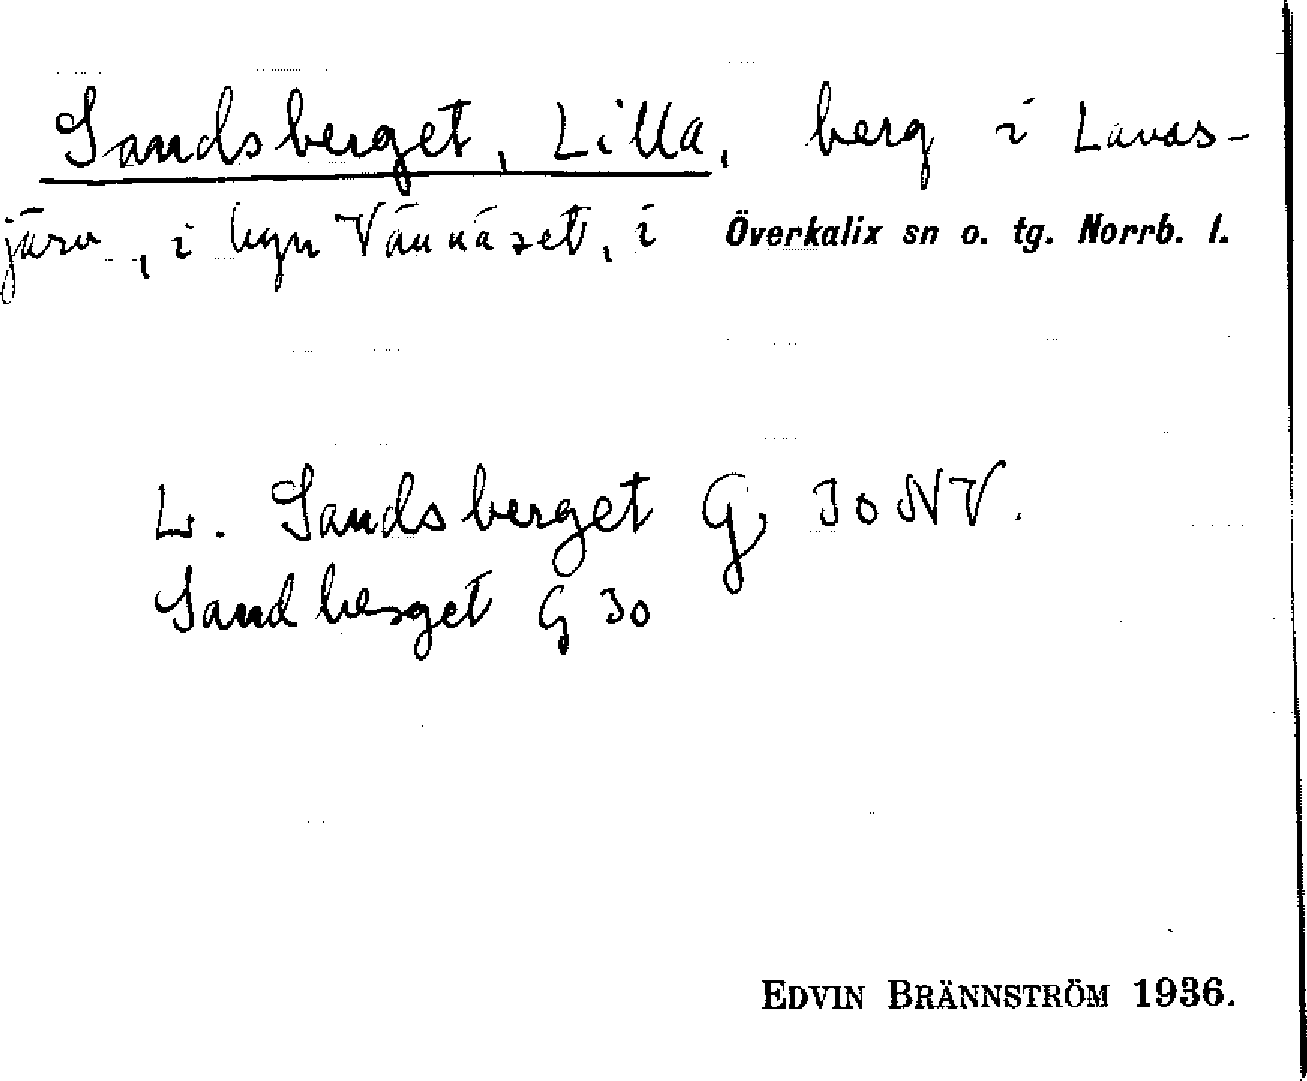 Sandsberget, Lilla, berg i Lavas-
järv, i byn Vännäset, i Överkalix sn o. tg. Norrb. l.
L. Sandsberget G 30 NV.
Sandberget G 30
EDVIN BRÄNNSTRÖM 1936.